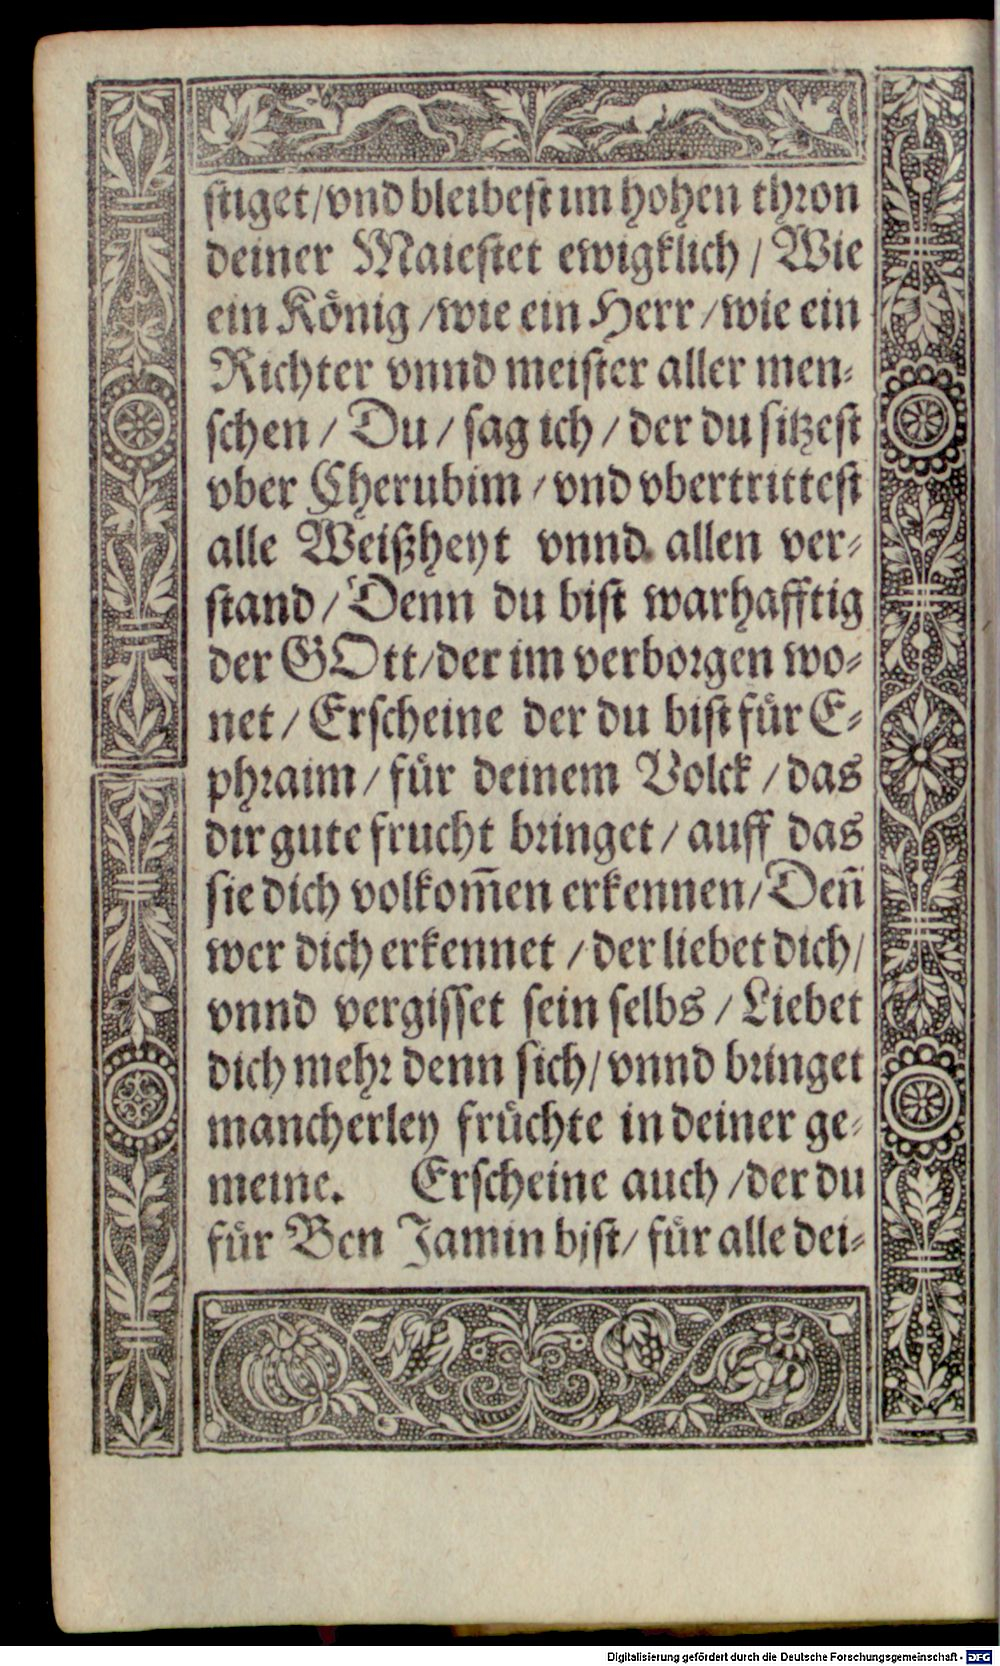 stiget/vnd bleibest im hohen thron
deiner Maiestet ewigklich / Wie
ein König /wie ein Herr /wie ein
Richter vnnd meister aller men-
schen / Du / sag ich / der du sitzest
vber Cherubim / vnd vbertrittest
alle Weißheyt vnnd allen ver-
stand / Denn du bist warhafftig
der GOtt/der im verborgen wo-
net / Erscheine der du bist für E-
phraim / für deinem Volck / das
dir gute frucht bringet / auff das
sie dich volkom̄en erkennen/Den̄
wer dich erkennet / der liebet dich/
vnnd vergisset sein selbs / Liebet
dich mehr denn sich/ vnnd bringet
mancherley früchte in deiner ge-
meine. Erscheine auch /der du
für Ben Jamin bist/ für alle dei-
Digitalisierung gefördert durch die Deutsche Forschungsgemeinschaft - DFG